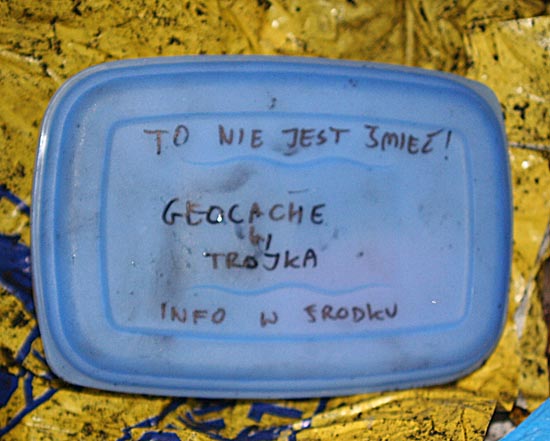 TO NIE JEST ŚMIEĆ!
GEOCACHE
by
TROJKA
INFO W ŚRODKU